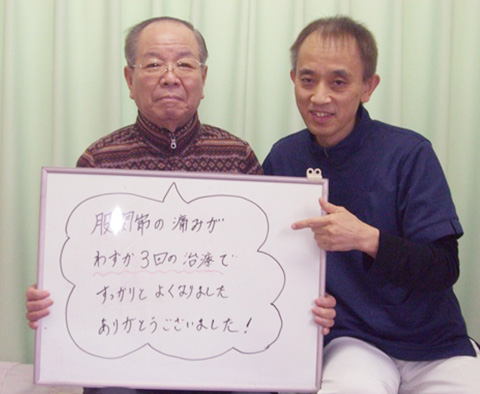 股関節の痛みが
わずか3回の治療で
すっかりとよくなりました
ありがとうございました!